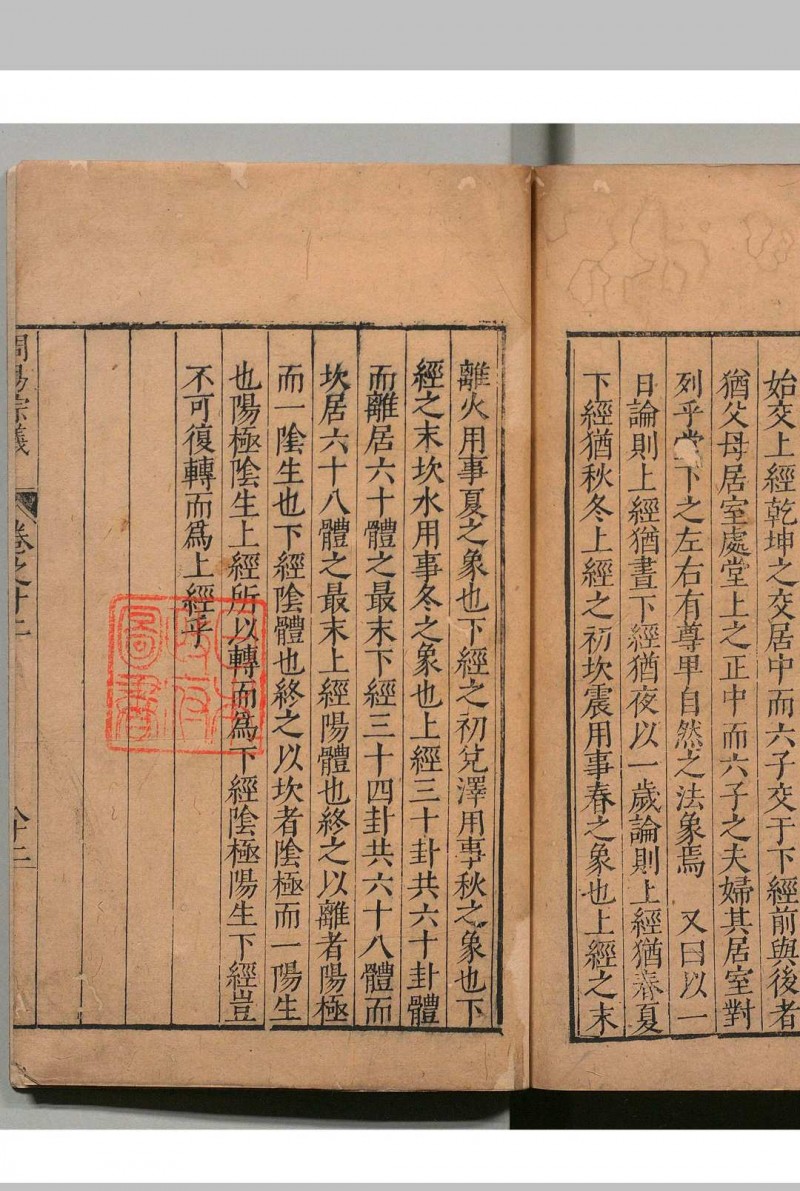 始交上經乾坤之交居中而六子交于下經前與後者
猶父母居室處堂上之正中而六子之夫婦其居室對
列乎堂下之左右有尊卑自然之法象焉　又曰以一
日論則上經猶晝下經猶夜以一歲論則上經猶春夏
下經猶秋冬上經之初坎震用事春之象也上經之末
離火用事夏之象也下經之初兌澤用事秋之象也下
經之末坎水用事冬之象也上經三十卦共六十卦體
而離居六十體之最末下經三十四卦共六十八體而
坎居六十八體之最末上經陽體也終之以離者陽極
而一陰生也下經陰體也終之以坎者陰極而一陽生
也陽極陰生上經所以轉而爲下經陰極陽生下經豈
不可復轉而爲上經乎
周易宗義
卷之十二
八十二
圖書